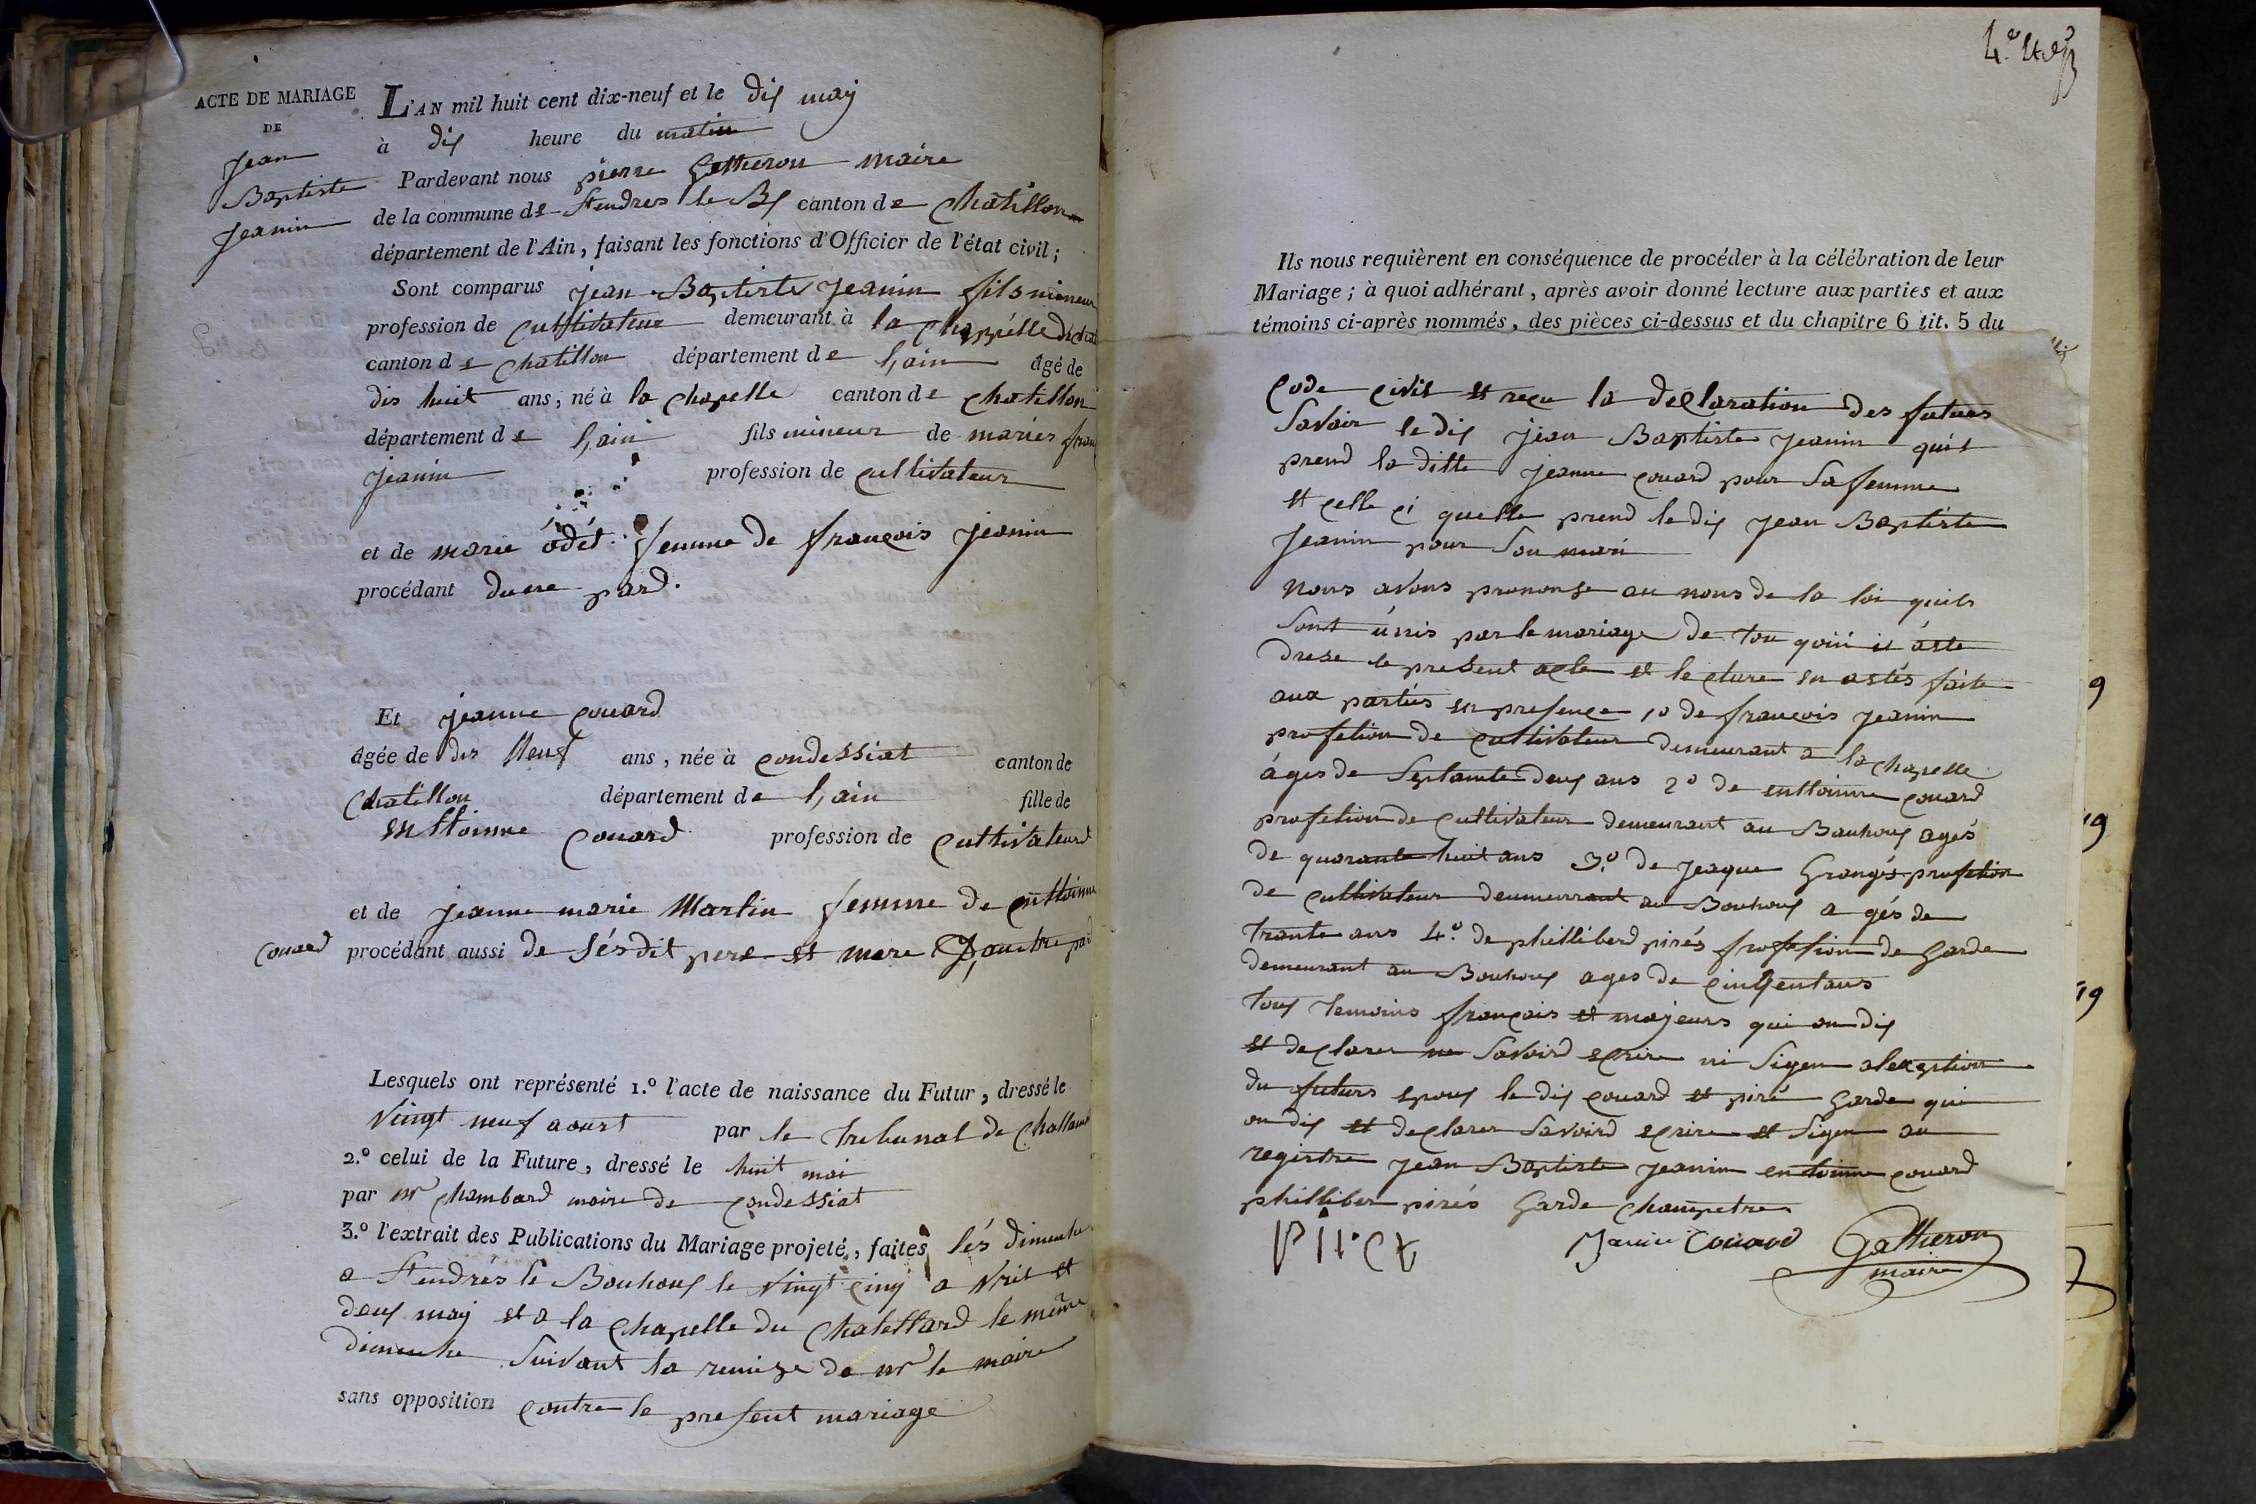 ACTE DE MARIAGE
DE
Jean
Baptiste
Jeanin
L'AN mil huit cent dix-neuf et le dix may
à dix heure du matin
Pardevant nous pierre Gatheron maire
de la commune de St endres le Bx canton de Chatillon
département de l'Ain, faisant les fonctions d'Officier de l'état civil;
Sont comparus jean Baptiste jeanin fils mineur
profession de Cultivateur demeurant à la Chappélle du chat
canton de Chatillon département de l,ain âgé de
dis huit ans, né à la Chapelle canton de Chatillon
département de l,ain fils mineur de mariés fran
jeanin profession de Cultivateur
et de marie odét femme de françois jeanin
procédant dune pard.
Et jeanne Couard
âgée de dis neuf ans, née à Condessiat canton de
Chatillon département de l,ain fille de
enttoinne Couard profession de Cultivateurd
et de jeanne marie Martin femme de enttoinne
Couard procédant aussi de sés dit pere et mere D,auttre pard
Lesquels ont représenté 1.º l'acte de naissance du Futur, dressé le
vingt neuf aoust par le tribunal de Challam
2.º celui de la Future, dressé le huit mai
par mr Chambard maire de Condessiat
3.º l'extrait des Publications du Mariage projeté, faites lés dimenche
a St endrés le Bouhoux le vingt cinq avril et
deux may et a la Chapelle du Chatellard le même
dimenche suivant la remize de mr le maire
sans opposition contre le presént mariage
4.e
Ils nous requièrent en conséquence de procéder à la célébration de leur
Mariage; à quoi adhérant, après avoir donné lecture aux parties et aux
témoins ci-après nommés, des pièces ci-dessus et du chapitre 6 tit. 5 du
Code Civil et reçu la déClaration des futurs
savoir le dix jean Baptiste jeanin quil
prend la ditte jeanne Couard pour sa femme
et celle Ci quelle prend le dix jean Baptiste
jeanin pour son mari
nous avons prononse au nous de la loi quils
sont unis par le mariage de tou qoiu il aste
drese le present acte et lecture en astés faite
aux partiés en presence 1º de françois jeanin
profetion de Cultivateur demeurant a la Chapelle
ágés de septante deux ans 2º de enttoinne Couard
profetion de Cultivateur demeurant au Bauhoux agés
de quarante huit ans 3.º de jeaque Grangés profetion
de Cultivateur deumeurrant au Bouhoux a gés de
trante ans 4.º de philliberd pirés profesion de Garde
demeurant au Bouhoux ages de Cinqentans
toux temoins français et majeurs qui on dix
et deClarer ne savoird eCrire ni sigen alexeption
du futurs epoux le dix Couard et piré Garde qui
on dix et deClarer savoird eCrire et sigen au
registre jean Baptiste jeanin entoinne Couard
philliber pirés Garde Champetre
Janin Couard Gattheron
maire